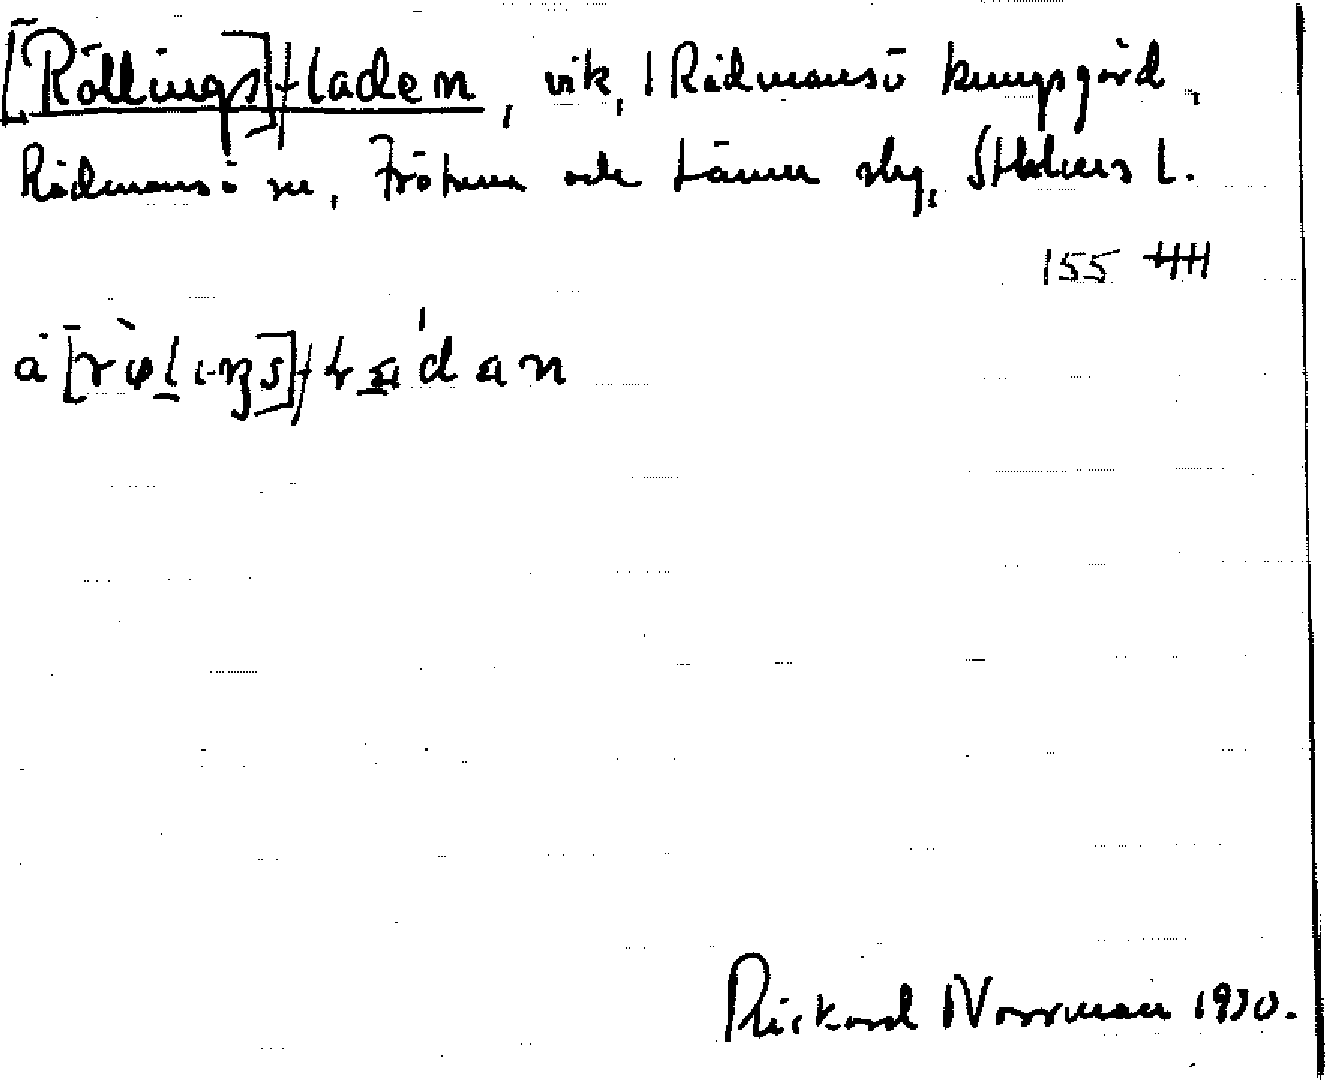 [Röllings]+laden, vik, i Rådmansö kungsgård,
Rådmansö sn, Frötuna och Länna skg, Sthlms l.
155 HH
Rickard Norrman 1930.